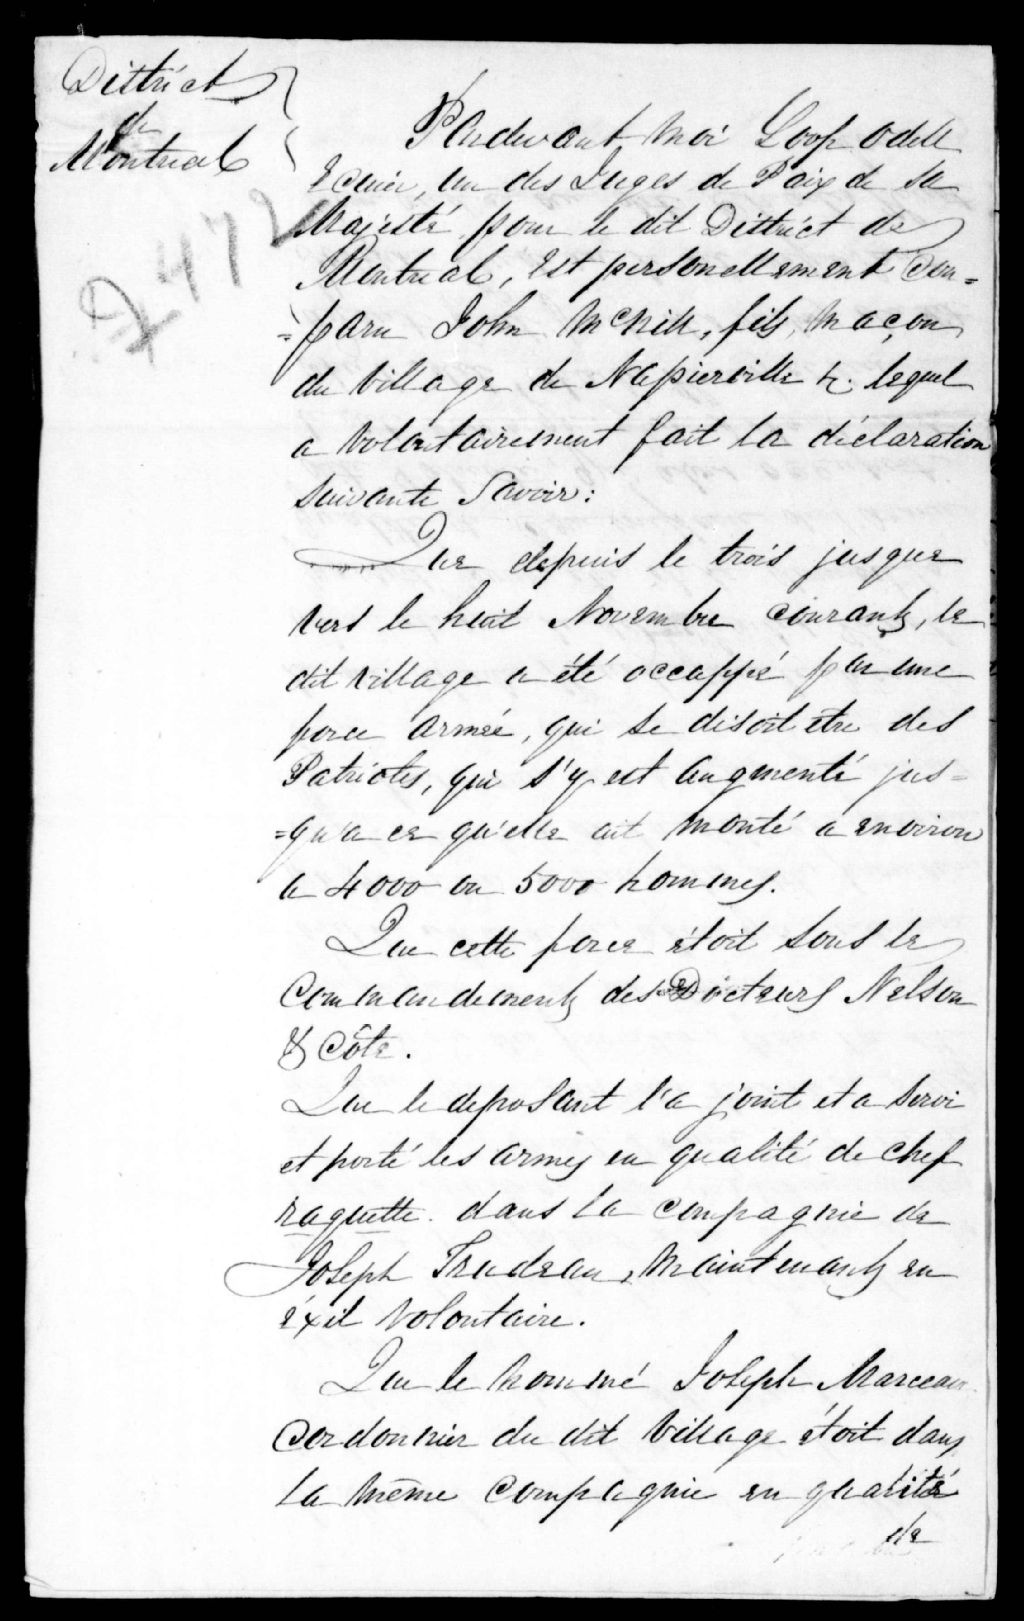 District
de
Montreal
472
Pardevant moi Loop Odell
Ecuier, un des Juges de Paix de Sa
Majesté pour le dit District de
Montreal, est personellement com=
=paru John McNill, fils, maçon,
du village de Napierville &. lequel
a volontairement fait la déclaration
suivante Savoir:
Que depuis le trois jusque
vers le huit Novembre courant, le
dit village a été occappé par une
force armée, qui se disoit etre des
Patriotes, qui s'y est augmenté jus=
=qu'a ce qu'elle ait monté a environ
a 4000 ou 5000 hommes.
Que cette force étoit sous le
commandement des Docteurs Nelson
& Côte.
Que le deposant l'a joint et a servi
et porté les armes en qualité de chef
raquette dans la compagnie de
Joseph Trudeau, maintenant en
éxil volontaire.
Que le nommé Joseph Marceau
Cordonnier du dit village étoit dans
la même compagnie en qualité
de